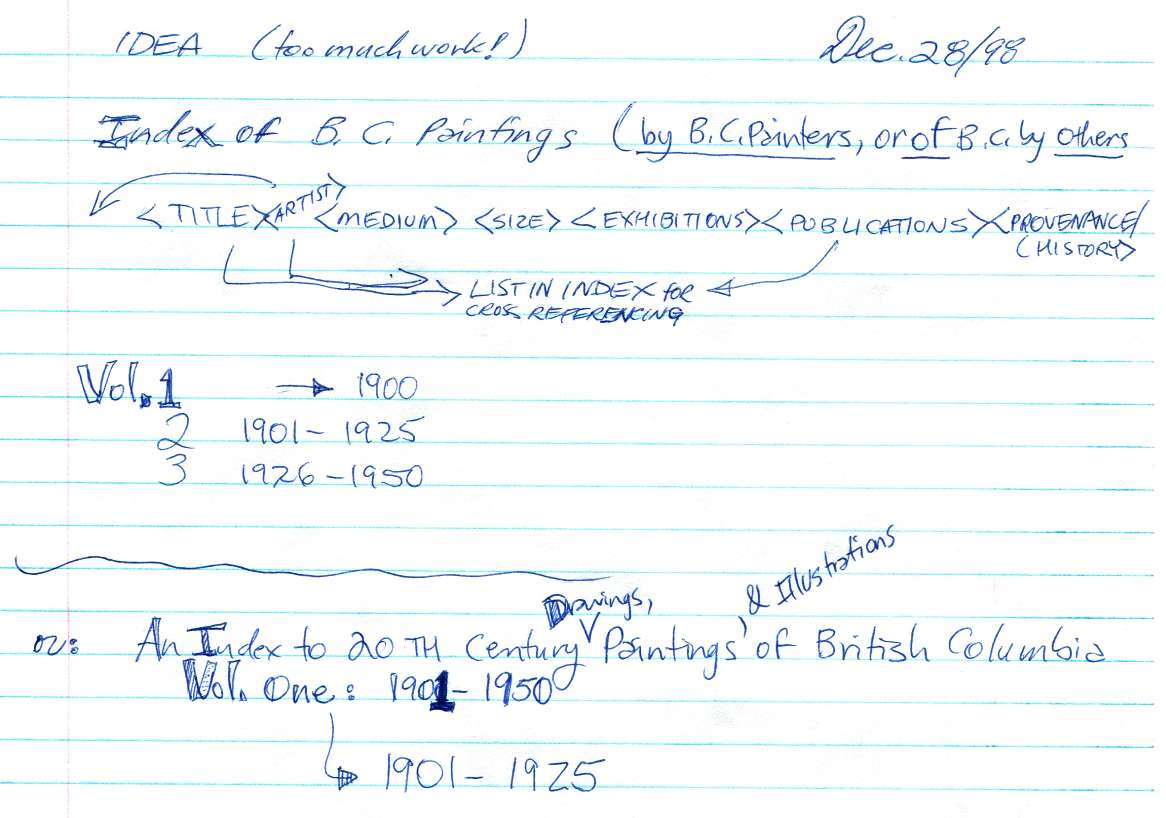 IDEA (too much work!) Dec. 28/98
Index of B.C. Paintings (by B.C. Painters, or of B.C. by others
<TITLE><ARTIST> <MEDIUM> <SIZE> <EXHIBITIONS> <PUBLICATIONS> <PROVENANCE/
(HISTORY>
LIST IN INDEX for
CROSS REFERENCING
Vol. 1 → 1900
2 1901 - 1925
3 1926 - 1950
or: An Index to 20TH Century Drawings, Paintings, & Illustrations of British Columbia
Vol. One: 1901 - 1950
1901 - 1925